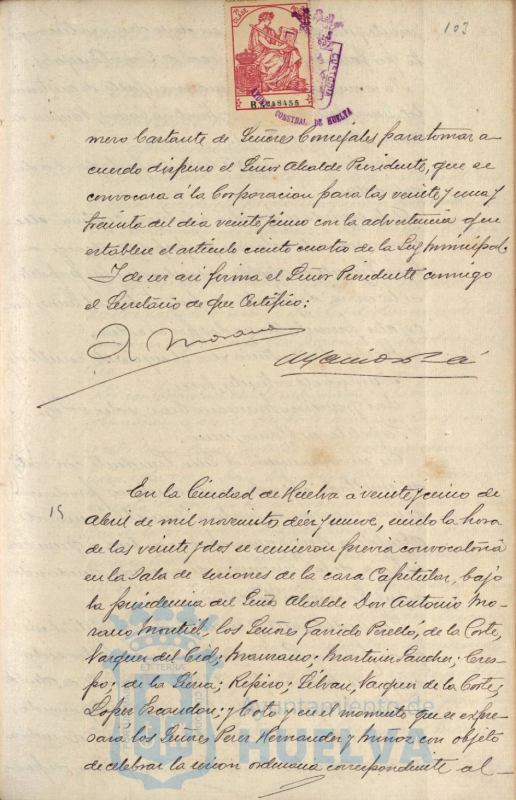 103
CLASE
B.
CONSTBAL. DE HUELVA
mero bastante de Señores Concejales para tomar a-
cuerdo dispuso el Señor Alcalde Presidente, que se
convocara á la Corporacion para las veinte y una y
treinta del dia veinte y cinco con la advertencia que
establece el artículo ciento cuatro de la Ley Municipal.
Y de ser asi firma el Señor Presidente conmigo
el Secretario de que Certifico:
A Morano
15
En la Ciudad de Huelva a veinte y cinco de
Abril de mil novecientos diez y nueve, siendo la hora
de las veinte y dos se reunieron previa convocatoria
en la Sala de sesiones de la casa Capitular, bajo
la presidencia del Señor Alcalde Don Antonio Mo-
rano Montiel, los Señores Garrido Perelló, de la Corte,
Vazquez del Cid; Manzano; Martinez Sanchez; Cres-
po; de la ; ; , Vazquez de la Corte,
Lopez Escandon; y Coto y en el momento que se expre-
sará los Señores Perez Hernandez y Muñoz con objeto
de celebrar la sesion ordinaria correspondiente al-
Ayuntamiento de
HUELVA